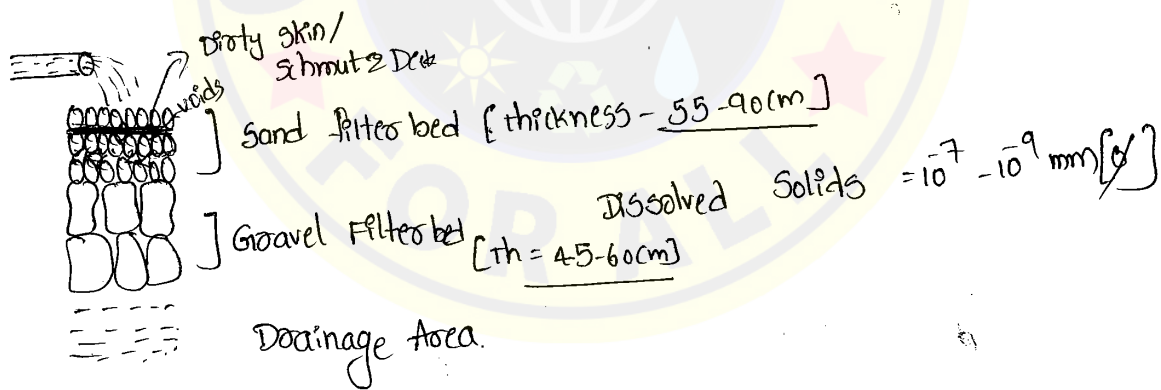 Dirty skin/
Schmutz Deck
voids
Sand filter bed [thickness - 55-90cm]
Dissolved Solids = 10⁻⁷ - 10⁻⁹ mm[∅]
Gravel Filter bed [Th = 45-60cm]
Drainage Area.
FOR ALL